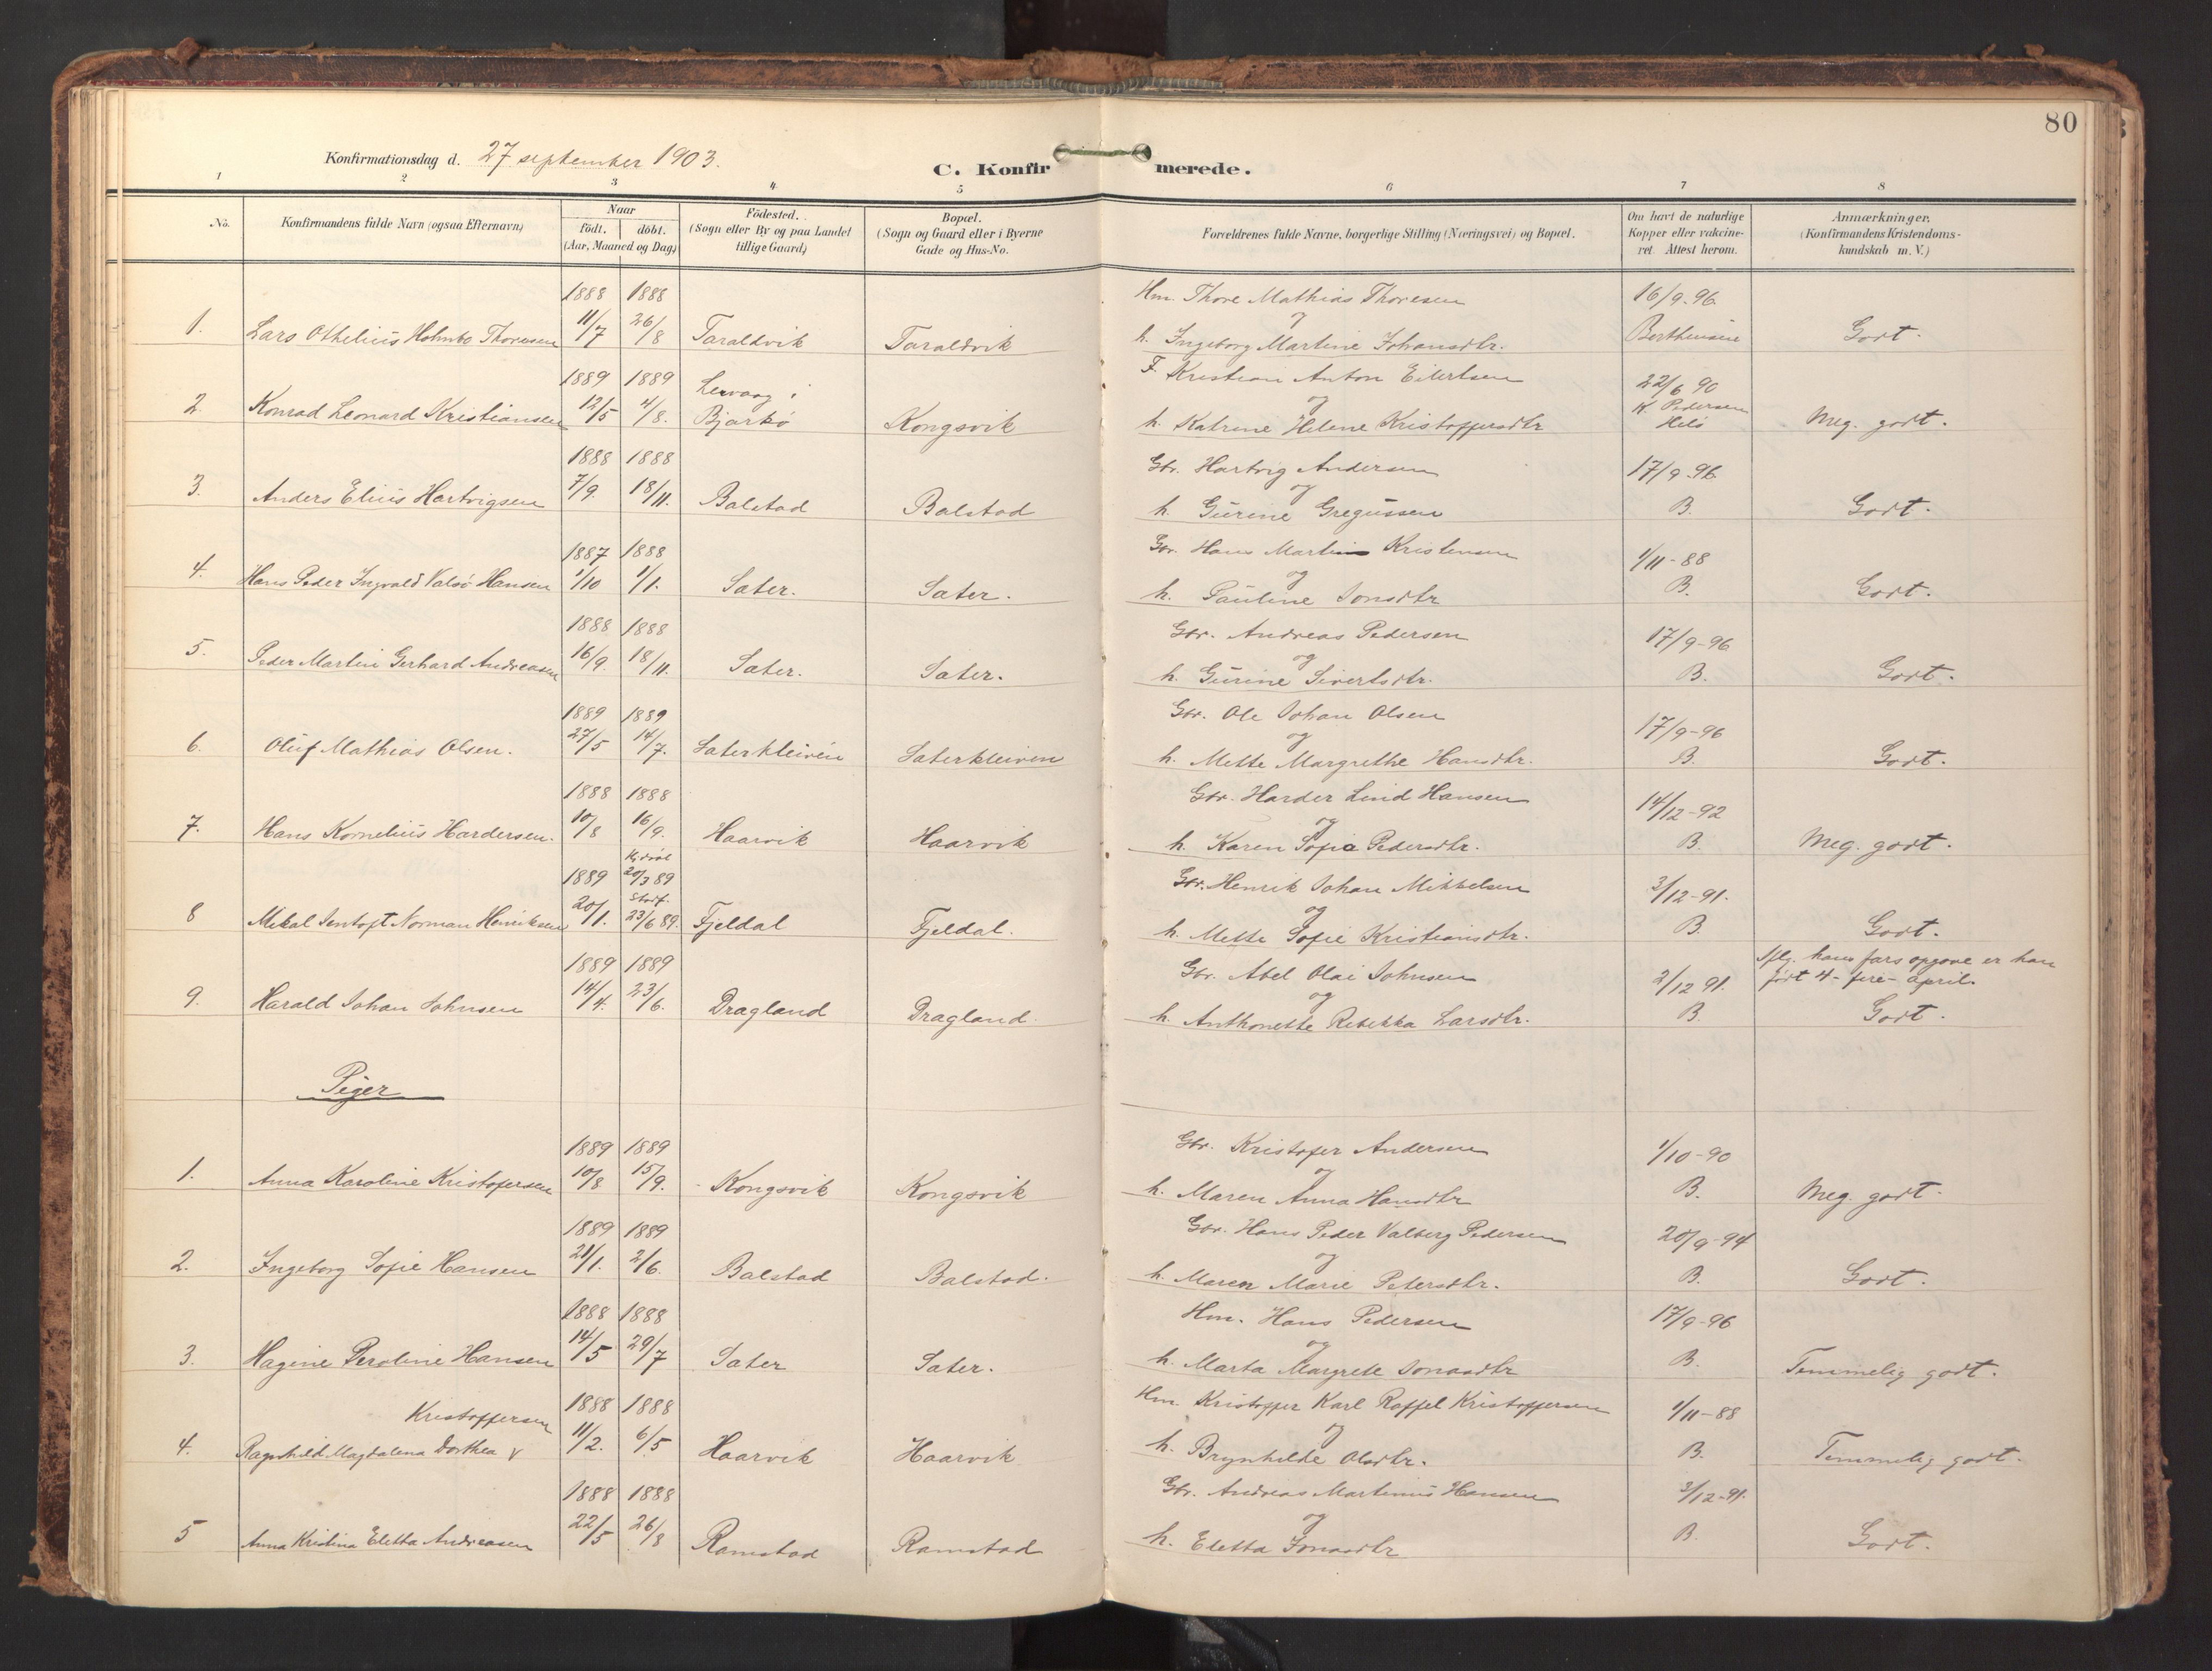 80
Konfirmationsdag d. 27 september 1903.
C. Konfirmerede.
1 2 3 4 5 6 7 8
No. Konfirmandens fulde Navn (ogsaa Efternavn) Naar födt. döbt. (Aar, Maaned og Dag) Födested. (Sogn eller By og paa Landet tillige Gaard) Bopæl. (Sogn og Gaard eller i Byerne Gade og Hus-No. Forældrenes fulde Navne, borgerlige Stilling (Næringsvei) og Bopæl. Om havt de naturlige Kopper eller vakcineret. Attest herom. Anmærkninger. (Konfirmandens Kristendomskundskab m. V.)
1888 1888 Hm. Thore Mathias Thoresen 16/9-96
1. Lars Othelius Holmbo Thoresen 11/7 26/8 Taraldvik Taraldvik og h. Ingeborg Martine Johansdtr. Berthensen Godt.
1889 1889 Lervaag i F. Kristian Anton Eilertsen 22/6 90
2. Konrad Leonard Kristiansen 12/5 4/8. Bjarkö Kongsvik og h. Katrine Helene Kristoffersdtr K. Pedersen Helö Meg. godt.
1888 1888 Gbr. Hartvig Andersen 17/9-96
3. Anders Elius Hartvigsen 7/9. 18/11. Balstad Balstad og h. Gurine Gregussen B. Godt.
1887 1888 Gbr. Hans Martin Kristensen 1/11-88
4. Hans Peder Ingvald Valsö Hansen 1/10 1/1. Sater. Sater. og h. Pauline Jonsdtr B. Godt.
1888 1888 Gbr. Andreas Pedersen 17/9-96
5. Peder Martin Gerhard Andreasen 16/9. 18/11. Sater. Sater. og h. Gurine Sivertsdtr. B. Godt.
1889 1889 Gbr. Ole Johan Olsen 17/9-96
6. Oluf Mathias Olsen. 27/5 14/7. Saterkleiven Saterkleiven og h. Mette Margrethe Hansdtr. B. Godt.
1888 1888 Gbr. Harder Lind Hansen 14/12-92
7. Hans Kornelius Hardersen. 10/8 16/9. Haarvik Haarvik og h. Karen Sofie Pedersdtr. B. Meg. godt.
1889 Hj.döbt 20/3 89 Gbr. Henrik Johan Mikkelsen 3/12-91.
8 Mikal Sentoft Norman Henriksen 20/1. Stadf. 23/6 89. Fjeldal Fjeldal. og h. Mette Sofie Kristiansdtr. B. Godt.
1889 1889 Gbr. Abel Olai Johnsen 2/12 91. Iflg. hans fars opgave er han født 4- fire- april.
9. Harald Johan Johnsen 14/4. 23/6. Dragland Dragland. og h. Anthonette Rebekka Larsdtr. B. Godt.
Piger
1889 1889 Gbr. Kristofer Andersen 1/10-90
1. Anna Karoline Kristofersen 10/8 15/9. Kongsvik Kongsvik og h. Maren Anna Hansdtr B. Meg. godt.
1889 1889 Gbr. Hans Peder Valberg Pedersen 20/9-94
2. Ingeborg Sofie Hansen 21/1. 2/6. Balstad Balstad. og h. Maren Marie Petersdtr. B. Godt.
1888 1888 Hm. Hans Pedersen 17/9-96
3. Hagine Peroline Hansen 14/5 29/7 Sater Sater. og h. Marta Margrete Jonasdtr B. Temmelig godt.
Kristoffersen 1888 1888 Hm. Kristoffer Karl Roffel Kristoffersen 1/11-88
4. Ragnhild Magdalena Dorthea 11/2. 6/5 Haarvik Haarvik og h. Brynhilde Olsdtr. B. Temmelig godt.
1888 1888 Gbr. Andreas Martinus Hansen 3/12-91.
5 Anna Kristina Eletta Andreasen 22/5 26/8 Ramstad Ramstad og h. Eletta Jonasdtr B. Godt.